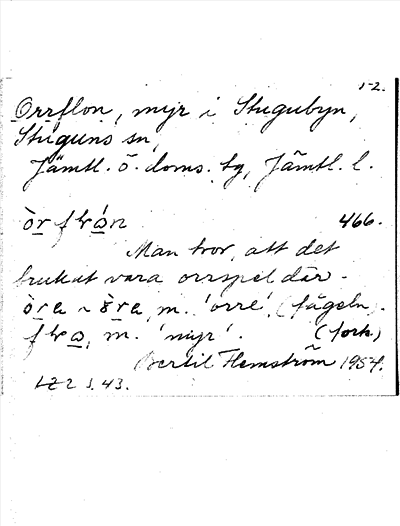 1-2.
Orrflon, myr i Stugubyn,
Stuguns sn,
Jämtl. ö. doms. tg, Jämtl. l.
òr flώn 466.
Man tror, att det
brukat vara orrspel där.
òra ~ òra, m. 'orre', (fågeln).
flω, m. 'myr'. (forh.)
Bertil Flemström 1954.
LZ 2 s. 43.